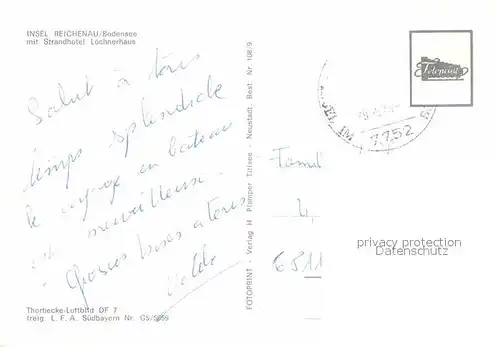 INSEL REICHENAU/Bodensee
mit Strandhotel Löchnerhaus
Salut à tous
temps splendide
le voyage en bateau
est merveilleux.
Grosses bises a tous
FOTOPRINT - Verlag H. Plamper Tzisee - Neustadt, Best. Nr. 108/9
Fotoprint
7752
Famil
6511
privacy protection
Datenschutz
Thorbecke-Luftbild DF 7
freig. L. F. A. Südbayern Nr. G5/5859